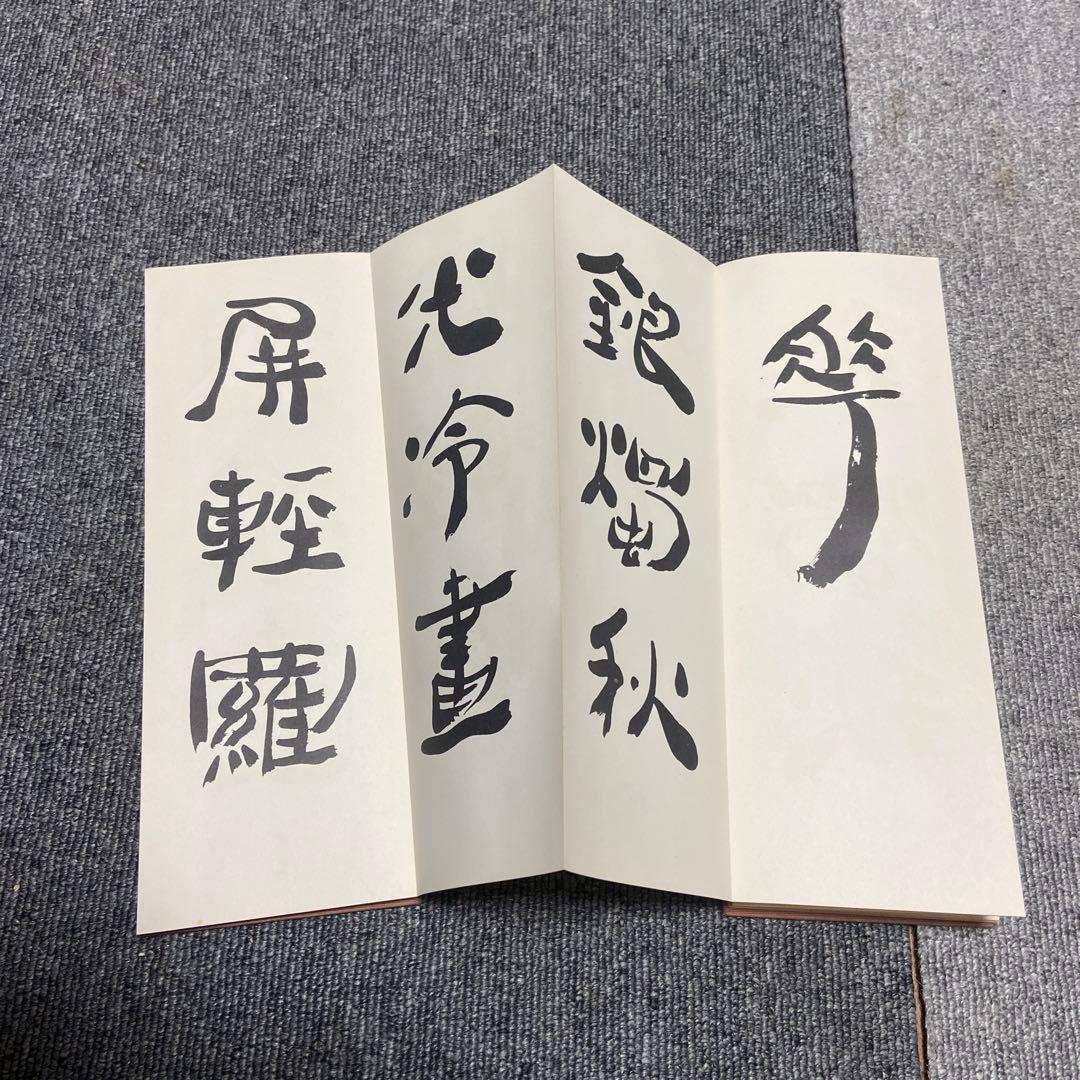 銀燭秋
光冷畫
屏輕羅